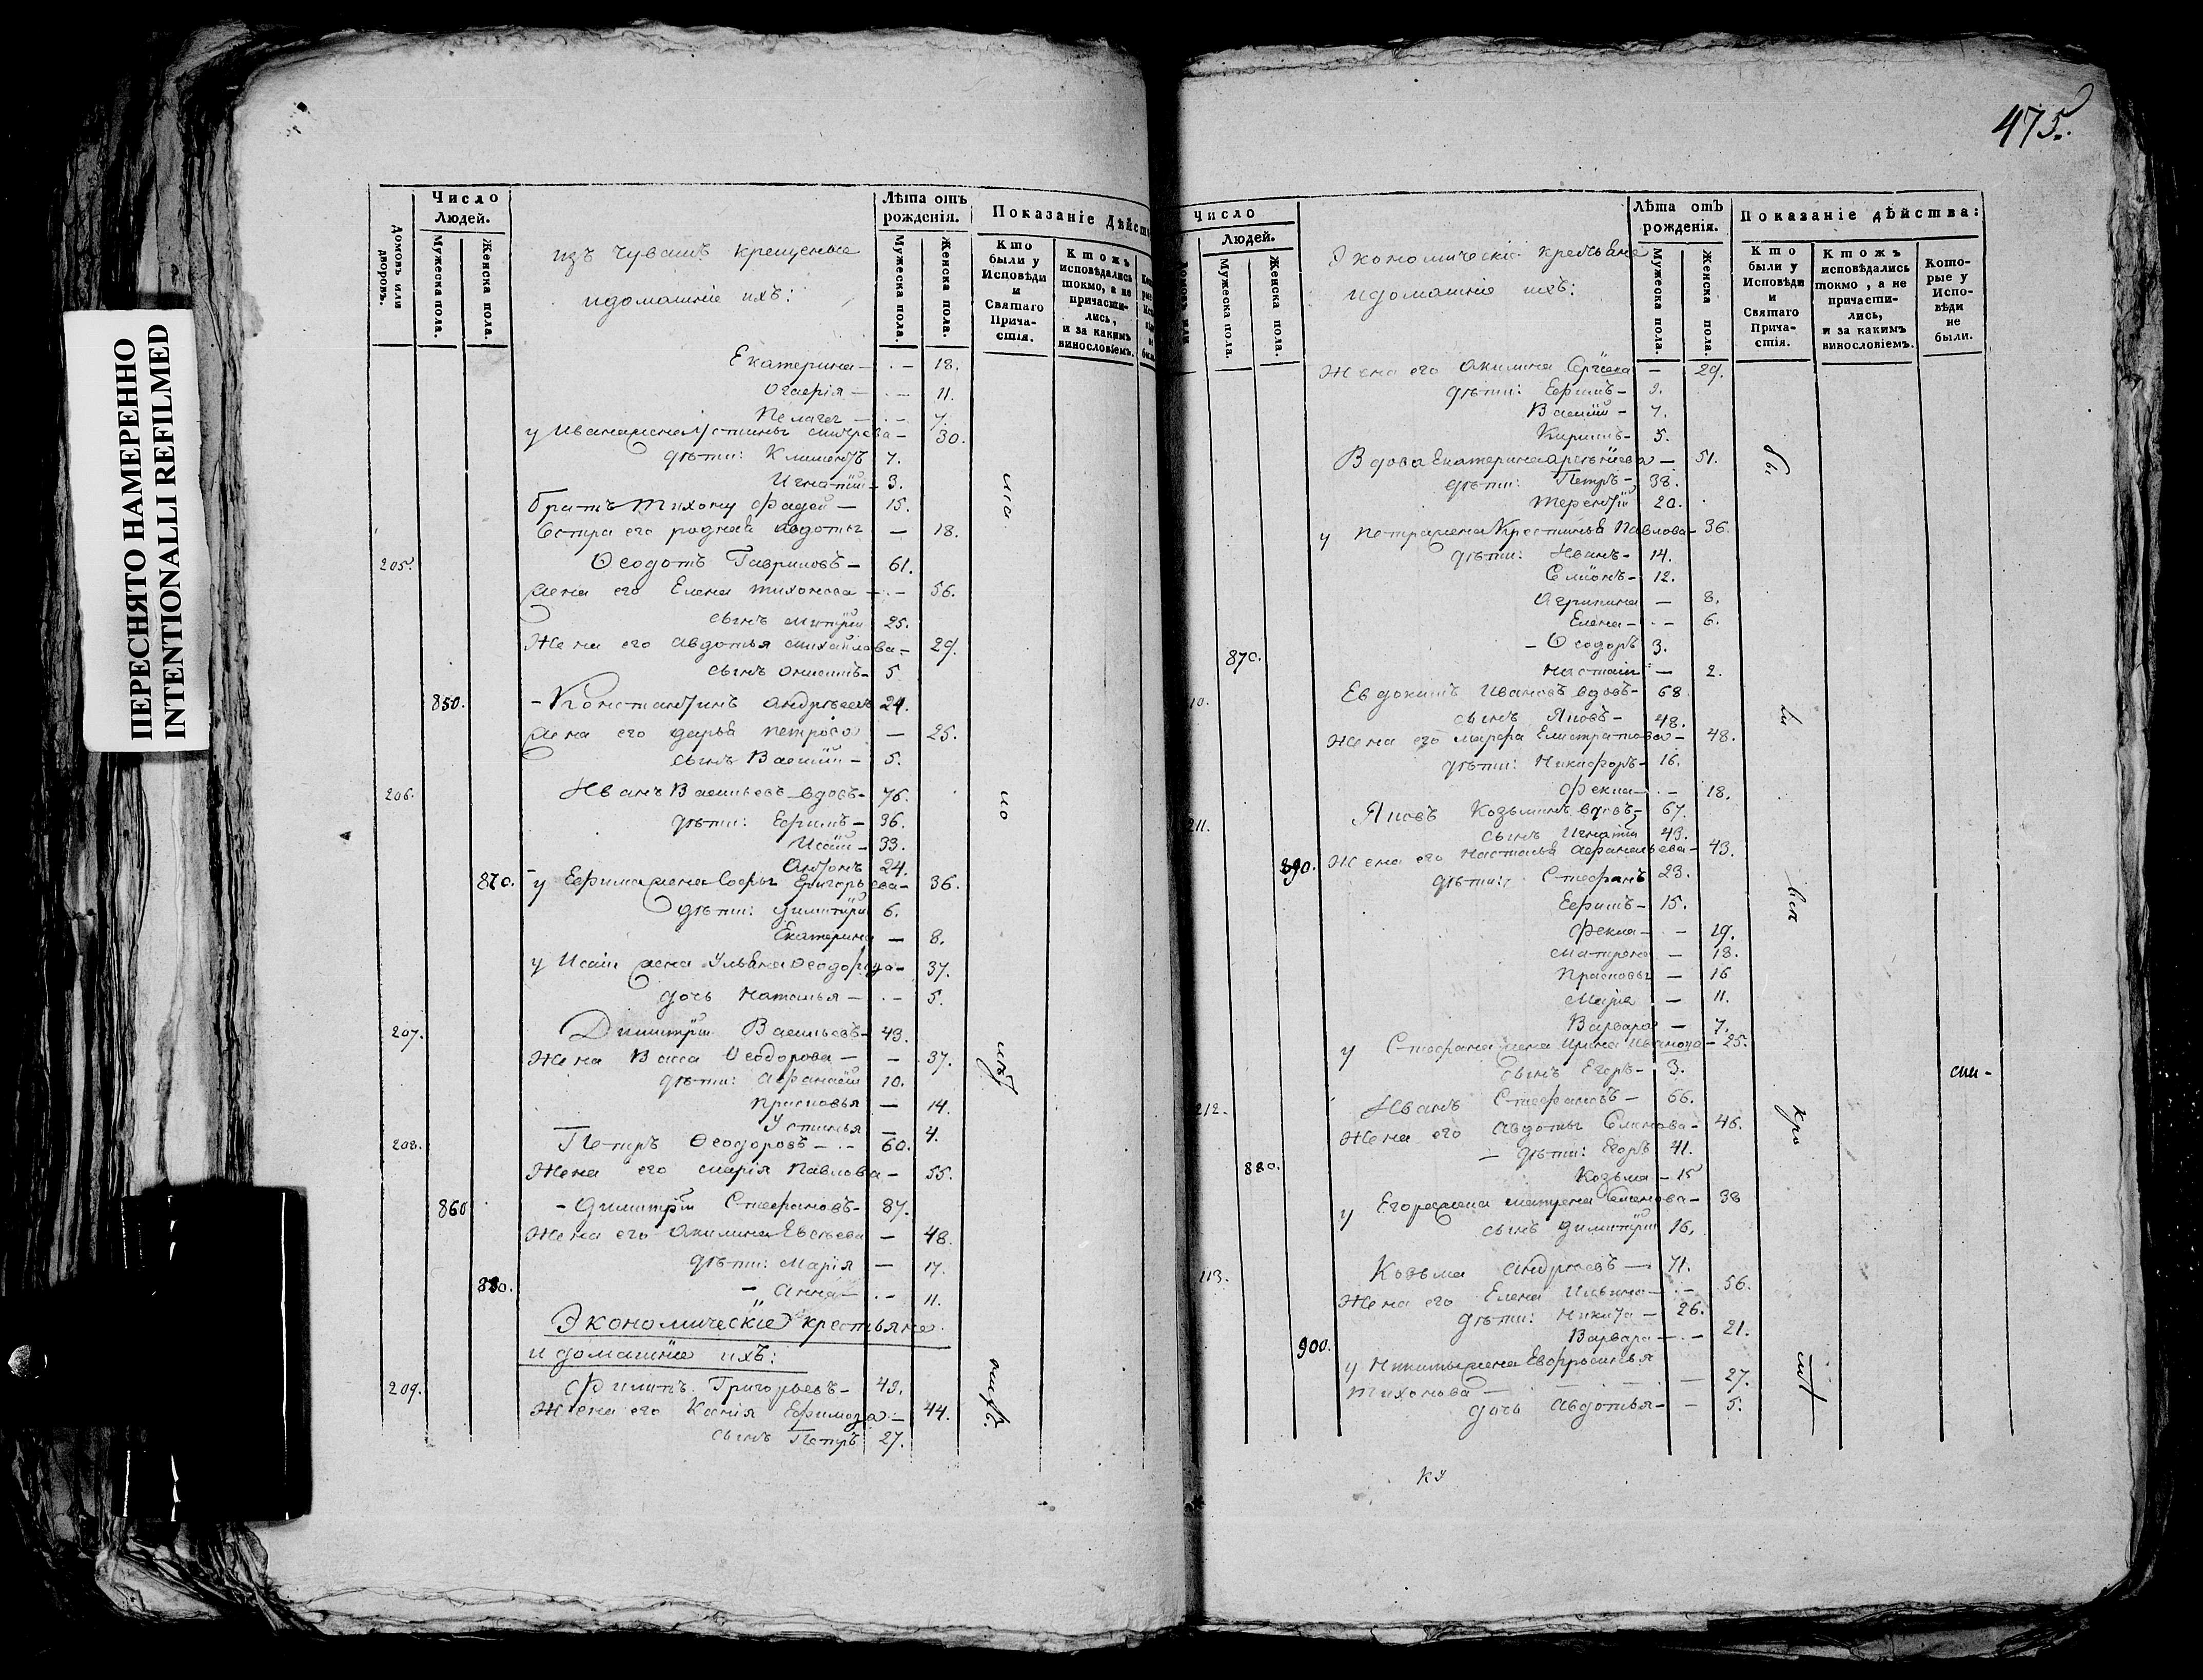 ПЕРЕСНЯТО НАМЕРЕННО
INTENTIONALLI REFILMED
Домовъ или дворовъ.
Число Людей.
Мужеска пола.
Женска пола.
изъ Чувашъ крещеные
и домашніе ихъ:
Лѣта отъ рожденія.
Мужеска пола.
Женска пола.
Показаніе дѣйст
Кто были у Исповѣди и Святаго Прича- стія.
Ктожъ исповѣдались токмо, а не причасти- лись, и за какимъ винословіемъ.
Екатерина — 18.
— 11.
Пелагея — 7.
у Ивана жена Устинья — 30.
дѣти: Климентъ 7.
Игнатій — 3.
братъ Тихону Фадей — 15.
Сестра его родная — 18.
205. Ѳеодотъ Гавриловъ — 61.
Жена его Елена Тихонова — 56.
сынъ Митрій 25.
Жена его Авдотья Михайлова — 29.
сынъ — 5
850. — Константинъ Андреевъ 24.
Жена его Дарья Петрова — 25.
сынъ Василій — 5.
206. Иванъ Васильевъ вдовъ — 76.
дѣти: Ефимъ — 36.
Исаій — 33.
Антонъ 24.
870. у Ефима жена Софья Григорьева — 36.
дѣти: Димитрій 6.
Екатерина — 8.
у Исаіи жена Ульяна Ѳеодорова — 37.
дочь Наталья — 5.
207. Димитрій Васильевъ — 43.
Жена Васса Ѳеодорова — 37.
дѣти: Афанасій 10.
Прасковья — 14.
Устинья — 4.
208. Петръ Ѳеодоровъ — 60.
Жена его Марія Павлова — 55.
860 — Димитрій Стефановъ — 87.
Жена его Акилина — 48.
дѣти: Марія — 17.
880. — Анна — 11.
Экономическіе крестьяне
и домашніе ихъ:
209. Филипъ Григорьевъ — 49.
Жена его Ксенія Ефимова — 44.
сынъ Петръ 27.
475.
Число Людей.
Мужеска пола.
Женска пола.
Экономическіе крестьяне
и домашніе ихъ:
Лѣта отъ рожденія.
Мужеска пола.
Женска пола.
Показаніе дѣйства:
Кто были у Исповѣди и Святаго Прича- стія.
Ктожъ исповѣдались токмо, а не причасти- лись, и за какимъ винословіемъ.
Кото- рые у Испо- вѣди не были.
Жена его Акилина Сергѣева — 29.
дѣти: Ефимъ — 9.
Василій — 7.
Кирилъ — 5.
Вдова Екатерина — 51.
дѣти: Петръ — 38.
Терентій 20.
у Петра жена Крестинья Павлова — 36.
дѣти: Иванъ — 14.
Семіонъ — 12.
Агрипина — 8.
Елена — 6.
870. — Ѳеодоръ 3.
— 2.
10. Евдокимъ Ивановъ вдовъ — 68
сынъ Яковъ — 48.
Жена его Марфа Елистратова — 48.
дѣти: Никифоръ — 16.
Фекла — 18.
211. Яковъ Козьминъ вдовъ — 67.
сынъ Игнатій 43.
890. Жена его Настасья Афанасьева — 43.
дѣти: Стефанъ 23.
Ефимъ — 15.
Фекла — 19.
Матрена — 18.
Прасковья — 16
Марія — 11.
Варвара — 7.
у Стефана жена Ирина Иванова — 25.
сынъ Егоръ — 3.
212. Иванъ Стефановъ — 66.
Жена его Авдотья — 46.
— дѣти: Егоръ 41.
880. Козьма — 15
у Егора жена Матрена Семенова — 38
сынъ Димитрій 16.
113. Козьма Андреевъ — 71.
Жена его Елена Ильина — 56.
дѣти: Никита — 26.
Варвара — 21.
900. у Никиты жена Евфросинья
Тихонова — 27.
дочь Авдотья — 5.